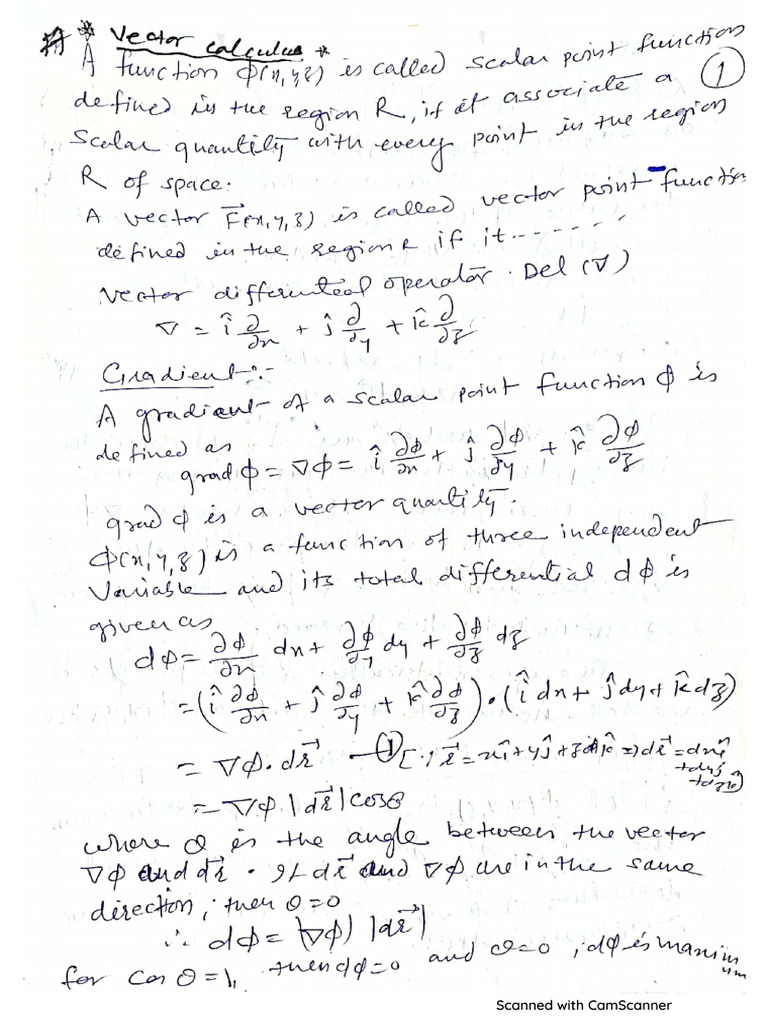 * Vector calculus *
A function ϕ(x,y,z) is called scalar point function
①
defined in the region R, if it associate a
Scalar quantity with every point in the region
R of space.
A vector F⃗(x,y,z) is called vector point function
defined in the region R if it.......
Vector differential operator. Del (∇)
∇ = î ∂/∂x + ĵ ∂/∂y + k̂ ∂/∂z
Gradient:-
A gradient of a scalar point function ϕ is
defined as
grad ϕ = ∇ϕ = î ∂ϕ/∂x + ĵ ∂ϕ/∂y + k̂ ∂ϕ/∂z
grad ϕ is a vector quantity.
ϕ(x,y,z) is a function of three independent
Variable and its total differential dϕ is
given as
dϕ = ∂ϕ/∂x dx + ∂ϕ/∂y dy + ∂ϕ/∂z dz
= (î ∂ϕ/∂x + ĵ ∂ϕ/∂y + k̂ ∂ϕ/∂z) · (î dx + ĵ dy + k̂ dz)
= ∇ϕ. dr⃗ —① [∵ r⃗ = xî + yĵ + zk̂ ⇒ dr⃗ = dxî
+dyĵ
+dzk̂)
= ∇ϕ |dr⃗| cosθ
where θ is the angle between the vector
∇ϕ and dr⃗. If dr⃗ and ∇ϕ are in the same
direction, then θ=0
∴ dϕ = |∇ϕ| |dr⃗|
for cos θ = 1, then dϕ=0 and θ=0, dϕ is maxim
um
Scanned with CamScanner